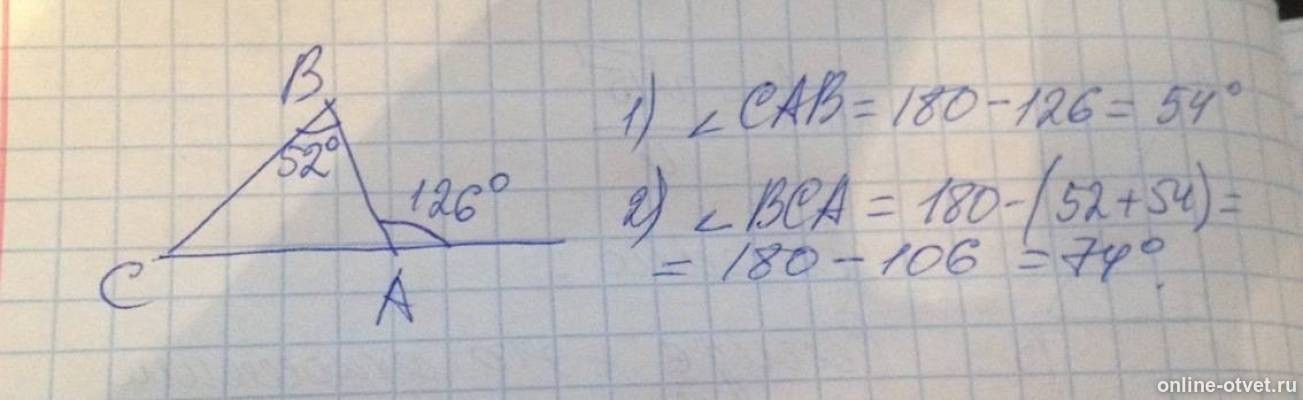 B
52°
126°
C
A
1) ∠CAB = 180 - 126 = 54°
2) ∠BCA = 180 - (52 + 54) =
= 180 - 106 = 74°.
online-otvet.ru